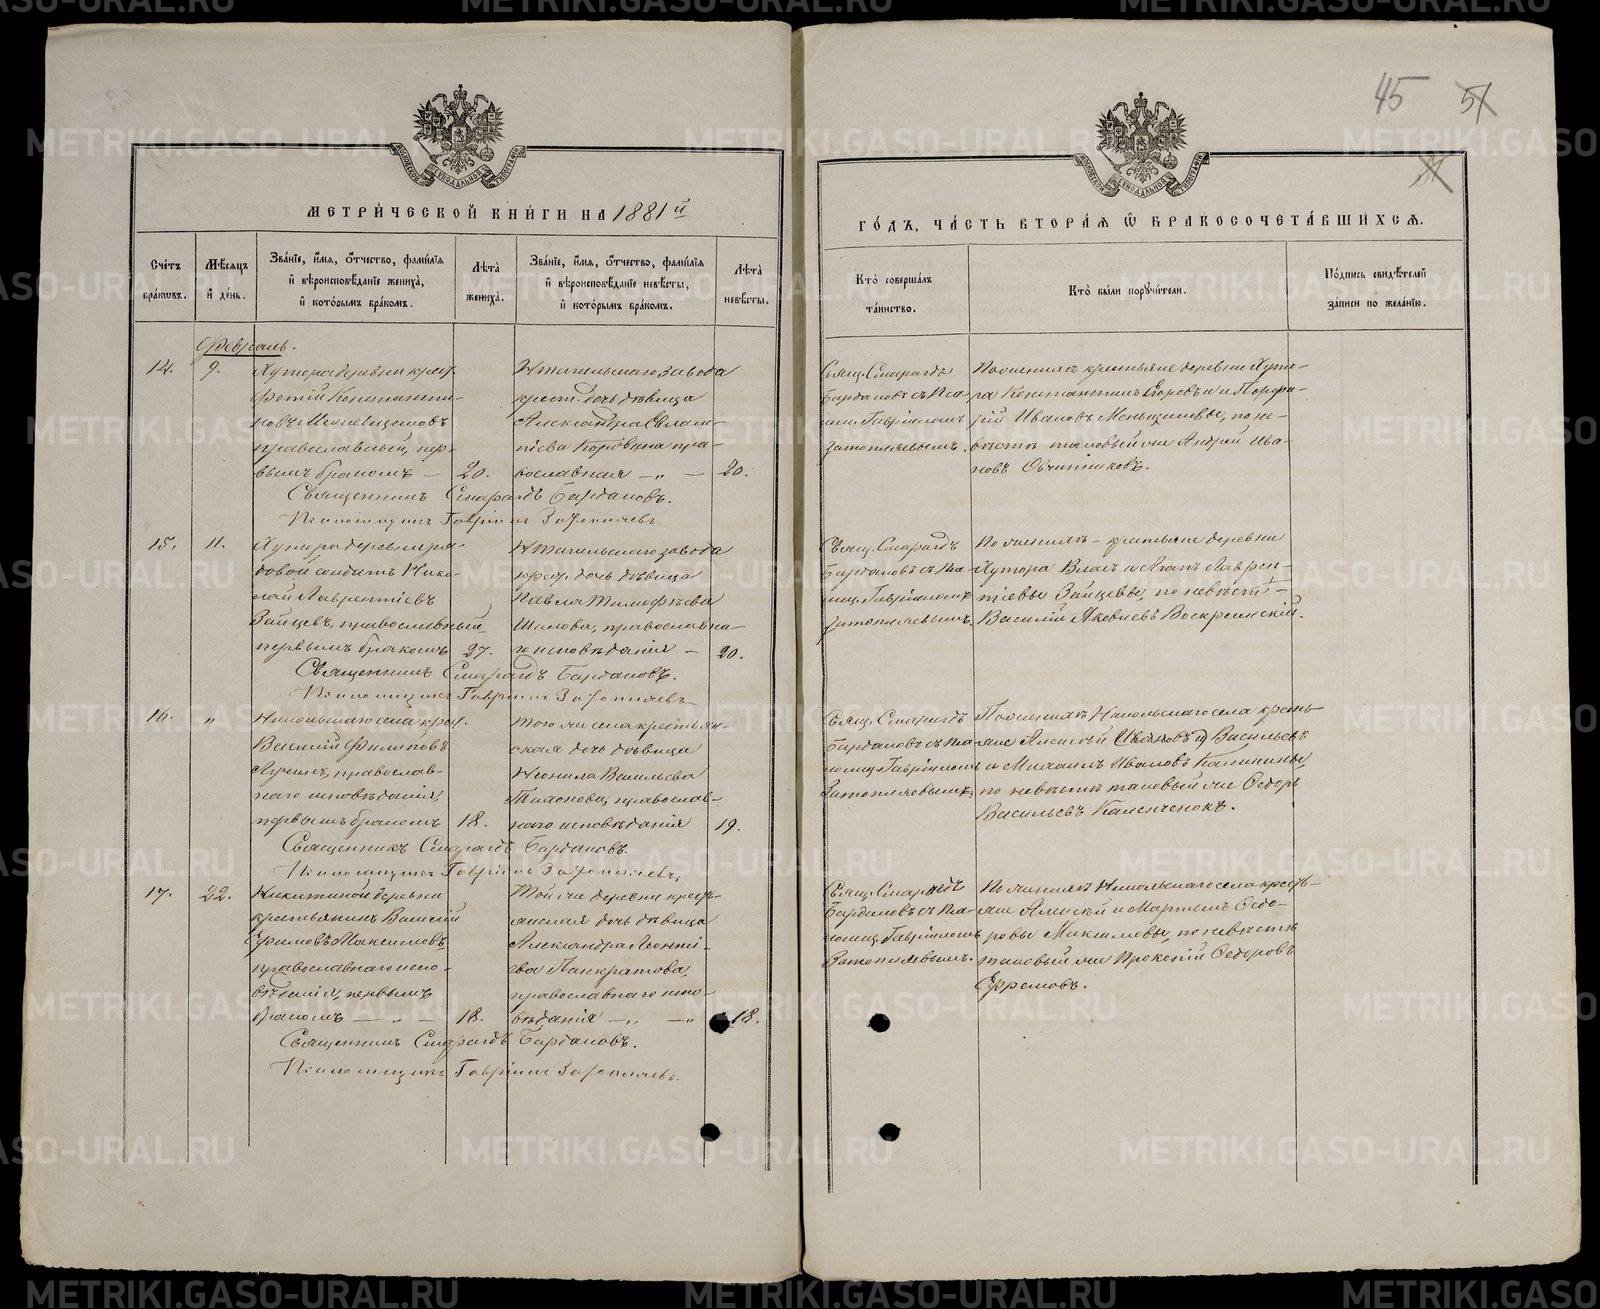 45 51
51
МЕТРИЧЕСКОЙ КНИГИ НА 1881 й
ГОДЪ, ЧАСТЬ ВТОРАЯ Ѿ БРАКОСОЧЕТАВШИХСЯ.
Счетъ браковъ.
Мѣсяцъ и день.
Званіе, имя, отчество, фамилія
и вѣроисповѣданіе жениха,
и которымъ бракомъ.
Лѣта жениха.
Званіе, имя, отчество, фамилія
и вѣроисповѣданіе невѣсты,
и которымъ бракомъ.
Лѣта невѣсты.
Кто совершалъ
таинство.
Кто были поручители.
Подпись свидѣтелей
записи по желанію.
Февраль.
14. 9.
Хутора деревни крест.
Фотій Константи-
новъ Меньщиковъ
православный, пер-
вымъ бракомъ — 20.
завода
крест. дочь дѣвица
Александра
Коровина пра-
вославная — „ — 20.
Свящ. Смарагдъ
Бардаковъ съ Пса-
лом. Гавріиломъ
Затопляевымъ.
По женихѣ крестьяне деревни Хуто-
ра Константинъ Егоровъ и Порфи-
рій Ивановъ Меньщиковы, по не-
вѣстѣ таковый же Андрей Ива-
новъ Овчинниковъ.
Священникъ Смарагдъ Бардаковъ.
Псаломщикъ Гавріилъ Затопляевъ.
15. 11.
Хутора деревни ря-
довой солдатъ Нико-
лай Лаврентіевъ
Зайцевъ, православный,
первымъ бракомъ 27.
завода
крест. дочь дѣвица
Павла Тимофѣева
Шилова, православна-
го исповѣданія — 20.
Свящ. Смарагдъ
Бардаковъ съ Пса-
лощ. Гавріиломъ
Затопляевымъ.
По женихѣ — крестьяне деревни
Хутора Власъ и Агапъ Лаврен-
тіевы Зайцевы, по невѣстѣ —
Василій Яковлевъ Воскресенскій.
Священникъ Смарагдъ Бардаковъ.
Псаломщикъ Гавріилъ Затопляевъ.
16. „
Никольскаго села крест.
Василій Филиповъ
православ-
наго исповѣданія,
первымъ бракомъ 18.
Того же села крестьян-
ская дочь дѣвица
Неонила Васильева
православ-
наго исповѣданія 19.
Свящ. Смарагдъ
Бардаковъ съ Пса-
ломщ. Гавріиломъ
Затопляевымъ.
По женихѣ Никольскаго села кресть-
яне Алексѣй Ивановъ Васильевъ
и Михаилъ Ивановъ Калинины,
по невѣстѣ таковый же Ѳедоръ
Васильевъ
Священникъ Смарагдъ Бардаковъ.
Псаломщикъ Гавріилъ Затопляевъ.
17. 22.
Никитиной деревни
крестьянинъ Василій
Ефимовъ Максимовъ
православнаго испо-
вѣданія, первымъ
бракомъ — „ — 18.
Той же деревни кресть-
янская дочь дѣвица
Александра Леонті-
ева Панкратова,
православнаго испо-
вѣданія — „ — 18.
Свящ. Смарагдъ
Бардаковъ съ Пса-
ломщ. Гавріиломъ
Затопляевымъ.
По женихѣ Никольскаго села кресть-
яне Алексѣй и Мартынъ Ѳедо-
ровы Максимовы, по невѣстѣ
таковый же Прокопій Ѳедоровъ
Ефремовъ.
Священникъ Смарагдъ Бардаковъ.
Псаломщикъ Гавріилъ Затопляевъ.
METRIKI.GASO-URAL.RU